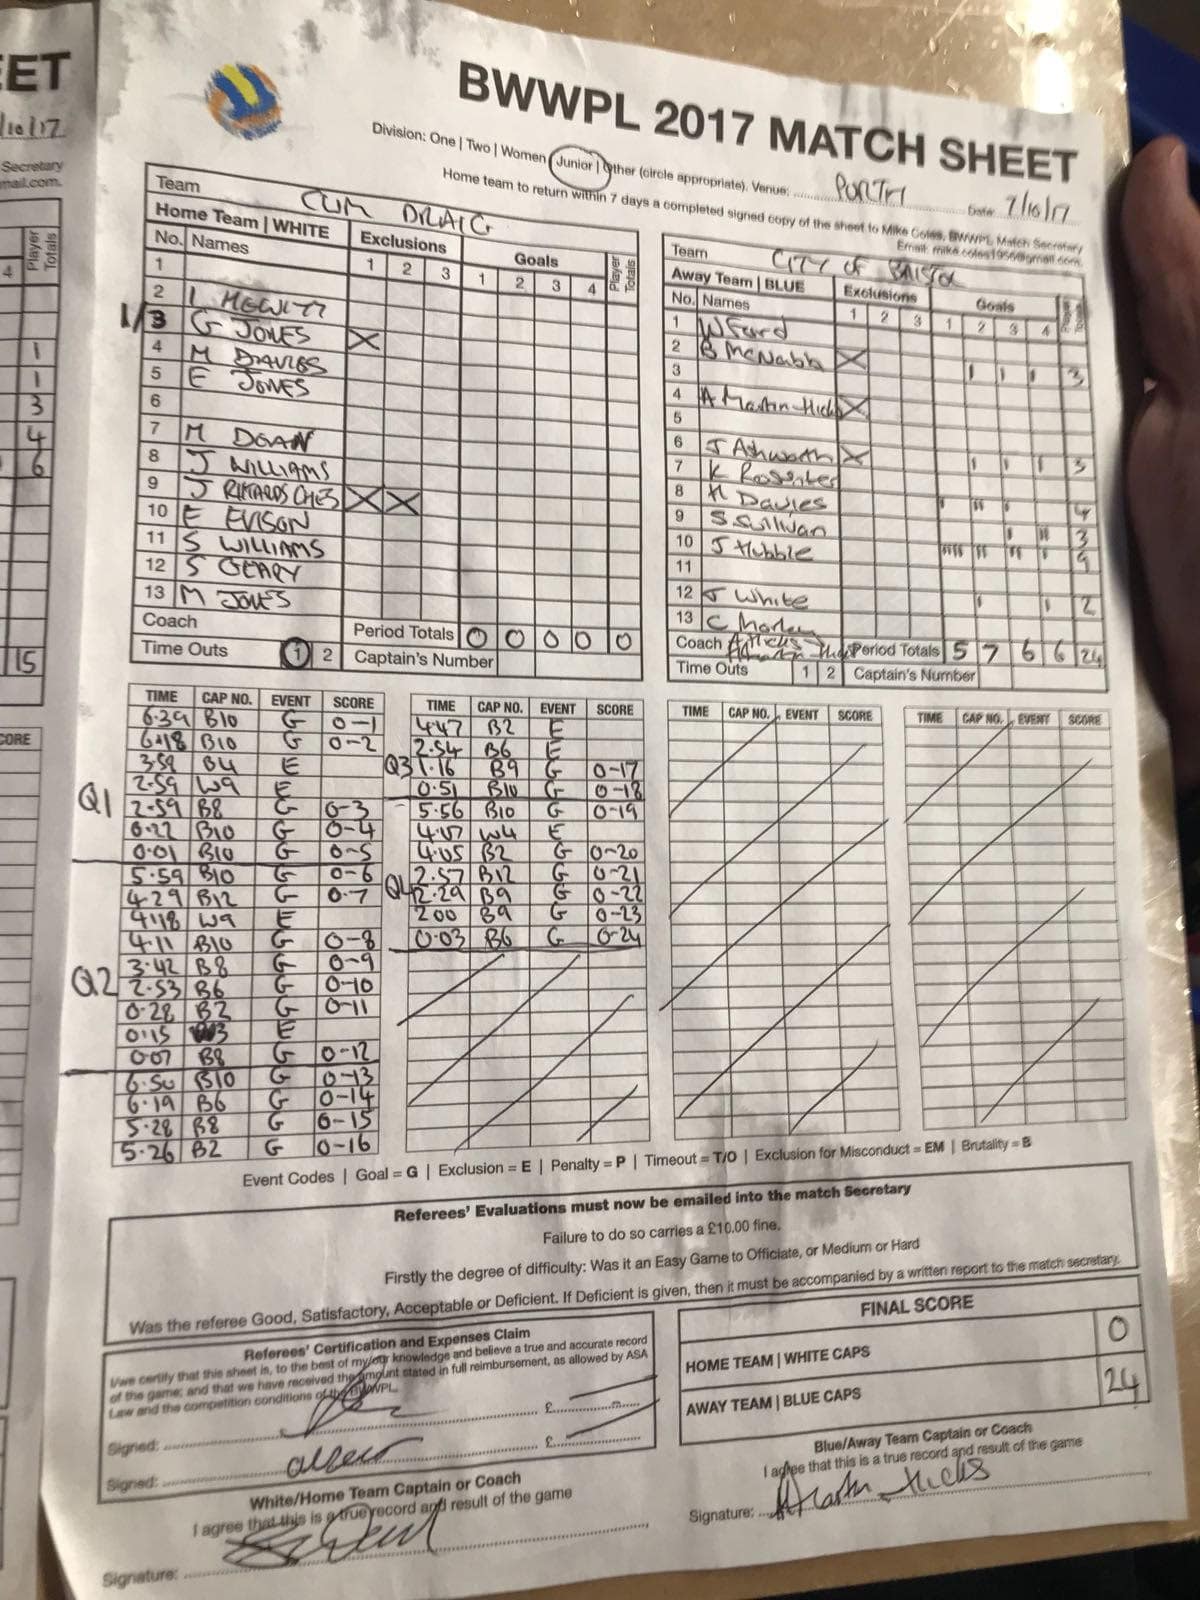 EET
/10/17
Secretary
mail.com.
4 Player Totals
1
1
3
4
6
15
CORE
BWWPL 2017 MATCH SHEET
Division: One | Two | Women | Junior | Other (circle appropriate). Venue: PORTH Date: 7/10/17
Home team to return within 7 days a completed signed copy of the sheet to Mike Coles, BWWPL Match Secretary
Email: mike.coles1956@gmail.com.
Team CWM DRAIG
Home Team | WHITE Exclusions Goals Player Totals
No. Names 1 2 3 1 2 3 4
1
2 I HEWITT
1/3 G JONES X
4 M DAVIES
5 E JONES
6
7 M DGAN
8 J WILLIAMS
9 J RIKARDS CHES X X
10 E EVISON
11 S WILLIAMS
12 S GEARY
13 M JONES
Coach Period Totals 0 0 0 0 0
Time Outs 1 2 Captain's Number
Team CITY OF BRISTOL
Away Team | BLUE Exclusions Goals Player Totals
No. Names 1 2 3 1 2 3 4
1 W Ford
2 B McNabb X
3 I I I 3
4 A Martin-Hicks X
5
6 J Ashworth X
7 K Rossiter I I I 3
8 H Davies
9 S Sullivan I II I 4
10 J Hubble I II 3
11 IIII II II I 9
12 J White
13 C Morley I I 2
Coach A Hicks Period Totals 5 7 6 6 24
Time Outs 1 2 Captain's Number
TIME CAP NO. EVENT SCORE
6.39 B10 G 0-1
6.18 B10 G 0-2
3.59 B4 E
2.59 W9 E
Q1 2.59 B8 G 0-3
0.22 B10 G 0-4
0.01 B10 G 0-5
5.59 B10 G 0-6
4.29 B12 G 0.7
4.18 W9 E
4.11 B10 G 0-8
3.42 B8 G 0-9
Q2 2.53 B6 G 0-10
0.28 B2 G 0-11
0.15 W3 E
0.07 B8 G 0-12
6.50 B10 G 0-13
6.19 B6 G 0-14
5.28 B8 G 0-15
5.26 B2 G 0-16
TIME CAP NO. EVENT SCORE
4.47 B2 E
2.54 B6 E
Q3 1.16 B9 G 0-17
0.51 B10 G 0-18
5.56 B10 G 0-19
4.07 W4 E
4.05 B2 G 0-20
2.57 B12 G 0-21
Q4 2.29 B9 G 0-22
2.00 B9 G 0-23
0.03 B6 G 0-24
TIME CAP NO. EVENT SCORE
TIME CAP NO. EVENT SCORE
Event Codes | Goal = G | Exclusion = E | Penalty = P | Timeout = T/O | Exclusion for Misconduct = EM | Brutality = B
Referees' Evaluations must now be emailed into the match Secretary
Failure to do so carries a £10.00 fine.
Firstly the degree of difficulty: Was it an Easy Game to Officiate, or Medium or Hard
Was the referee Good, Satisfactory, Acceptable or Deficient. If Deficient is given, then it must be accompanied by a written report to the match secretary.
Referees' Certification and Expenses Claim
I/we certify that this sheet is, to the best of my/our knowledge and believe a true and accurate record
of the game; and that we have received the amount stated in full reimbursement, as allowed by ASA
Law and the competition conditions of the BWWPL.
Signed: £
Signed: £
FINAL SCORE
HOME TEAM | WHITE CAPS 0
AWAY TEAM | BLUE CAPS 24
White/Home Team Captain or Coach
I agree that this is a true record and result of the game
Signature:
Blue/Away Team Captain or Coach
I agree that this is a true record and result of the game
Signature: A Martin-Hicks